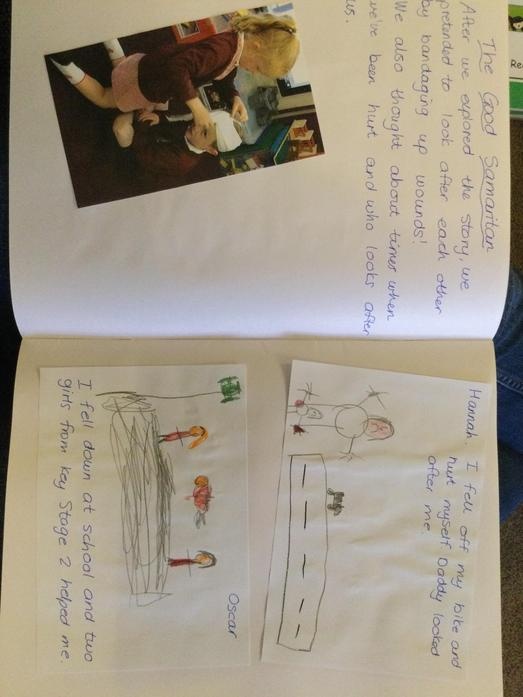 The Good Samaritan
After we explored the story, we
pretended to look after each other
by bandaging up wounds!
We also thought about times when
we've been hurt and who looks after
us.
Hannah. I fell off my bike and
hurt myself. Daddy looked
after me.
Oscar
I fell down at school and two
girls from Key Stage 2 helped me.